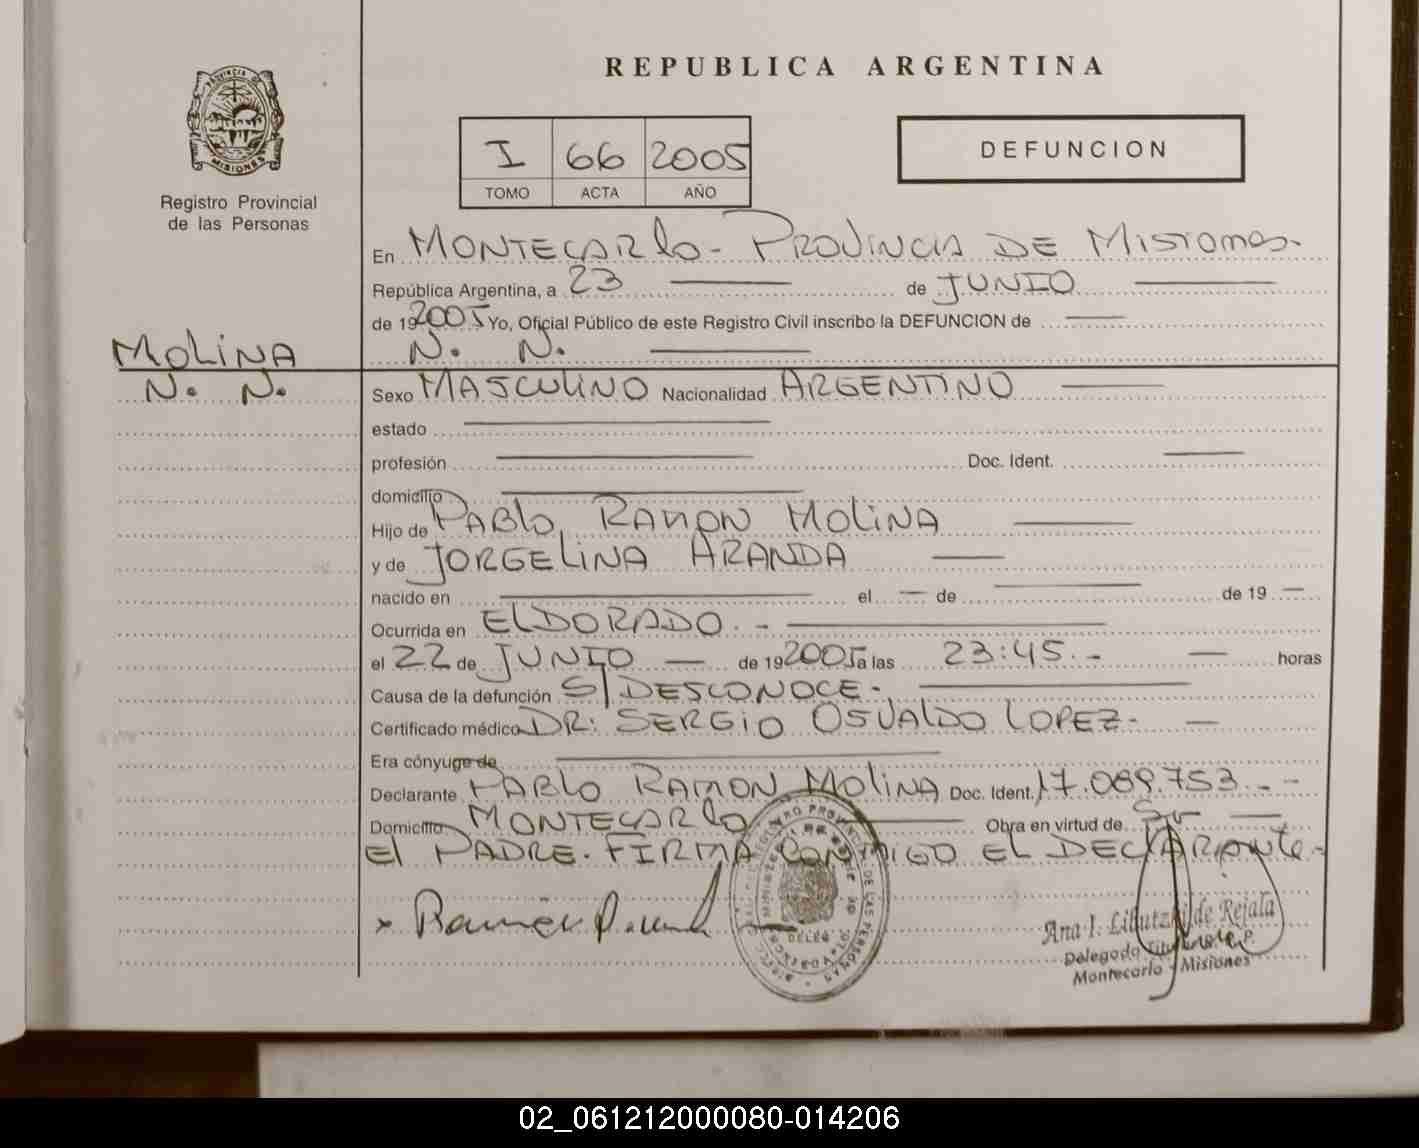 REPUBLICA ARGENTINA
PROVINCIA DE
MISIONES
Registro Provincial
de las Personas
I 66 2005
TOMO ACTA AÑO
DEFUNCION
En MONTECARLO - PROVINCIA DE MISIONES.
República Argentina, a 23 de JUNIO
de 19 2005 Yo, Oficial Público de este Registro Civil inscribo la DEFUNCION de
MOLINA
N. N.
N. N.
Sexo MASCULINO Nacionalidad ARGENTINO
estado
profesión Doc. Ident.
domicilio
Hijo de PABLO RAMON MOLINA
y de JORGELINA ARANDA
nacido en el de de 19
Ocurrida en ELDORADO. -
el 22 de JUNIO de 19 2005 a las 23:45. - horas
Causa de la defunción S/DESCONOCE.
Certificado médico DR: SERGIO OSVALDO LOPEZ.
Era cónyuge de
Declarante PABLO RAMON MOLINA Doc. Ident. 17.089.753. -
Domicilio MONTECARLO Obra en virtud de Ser
El PADRE. FIRMA CONMIGO EL DECLARANTE.
x Ramón
DE LAS PERSONAS
Ana I. de Rejala
Delegado Titular
Montecarlo - Misiones
02_061212000080-014206